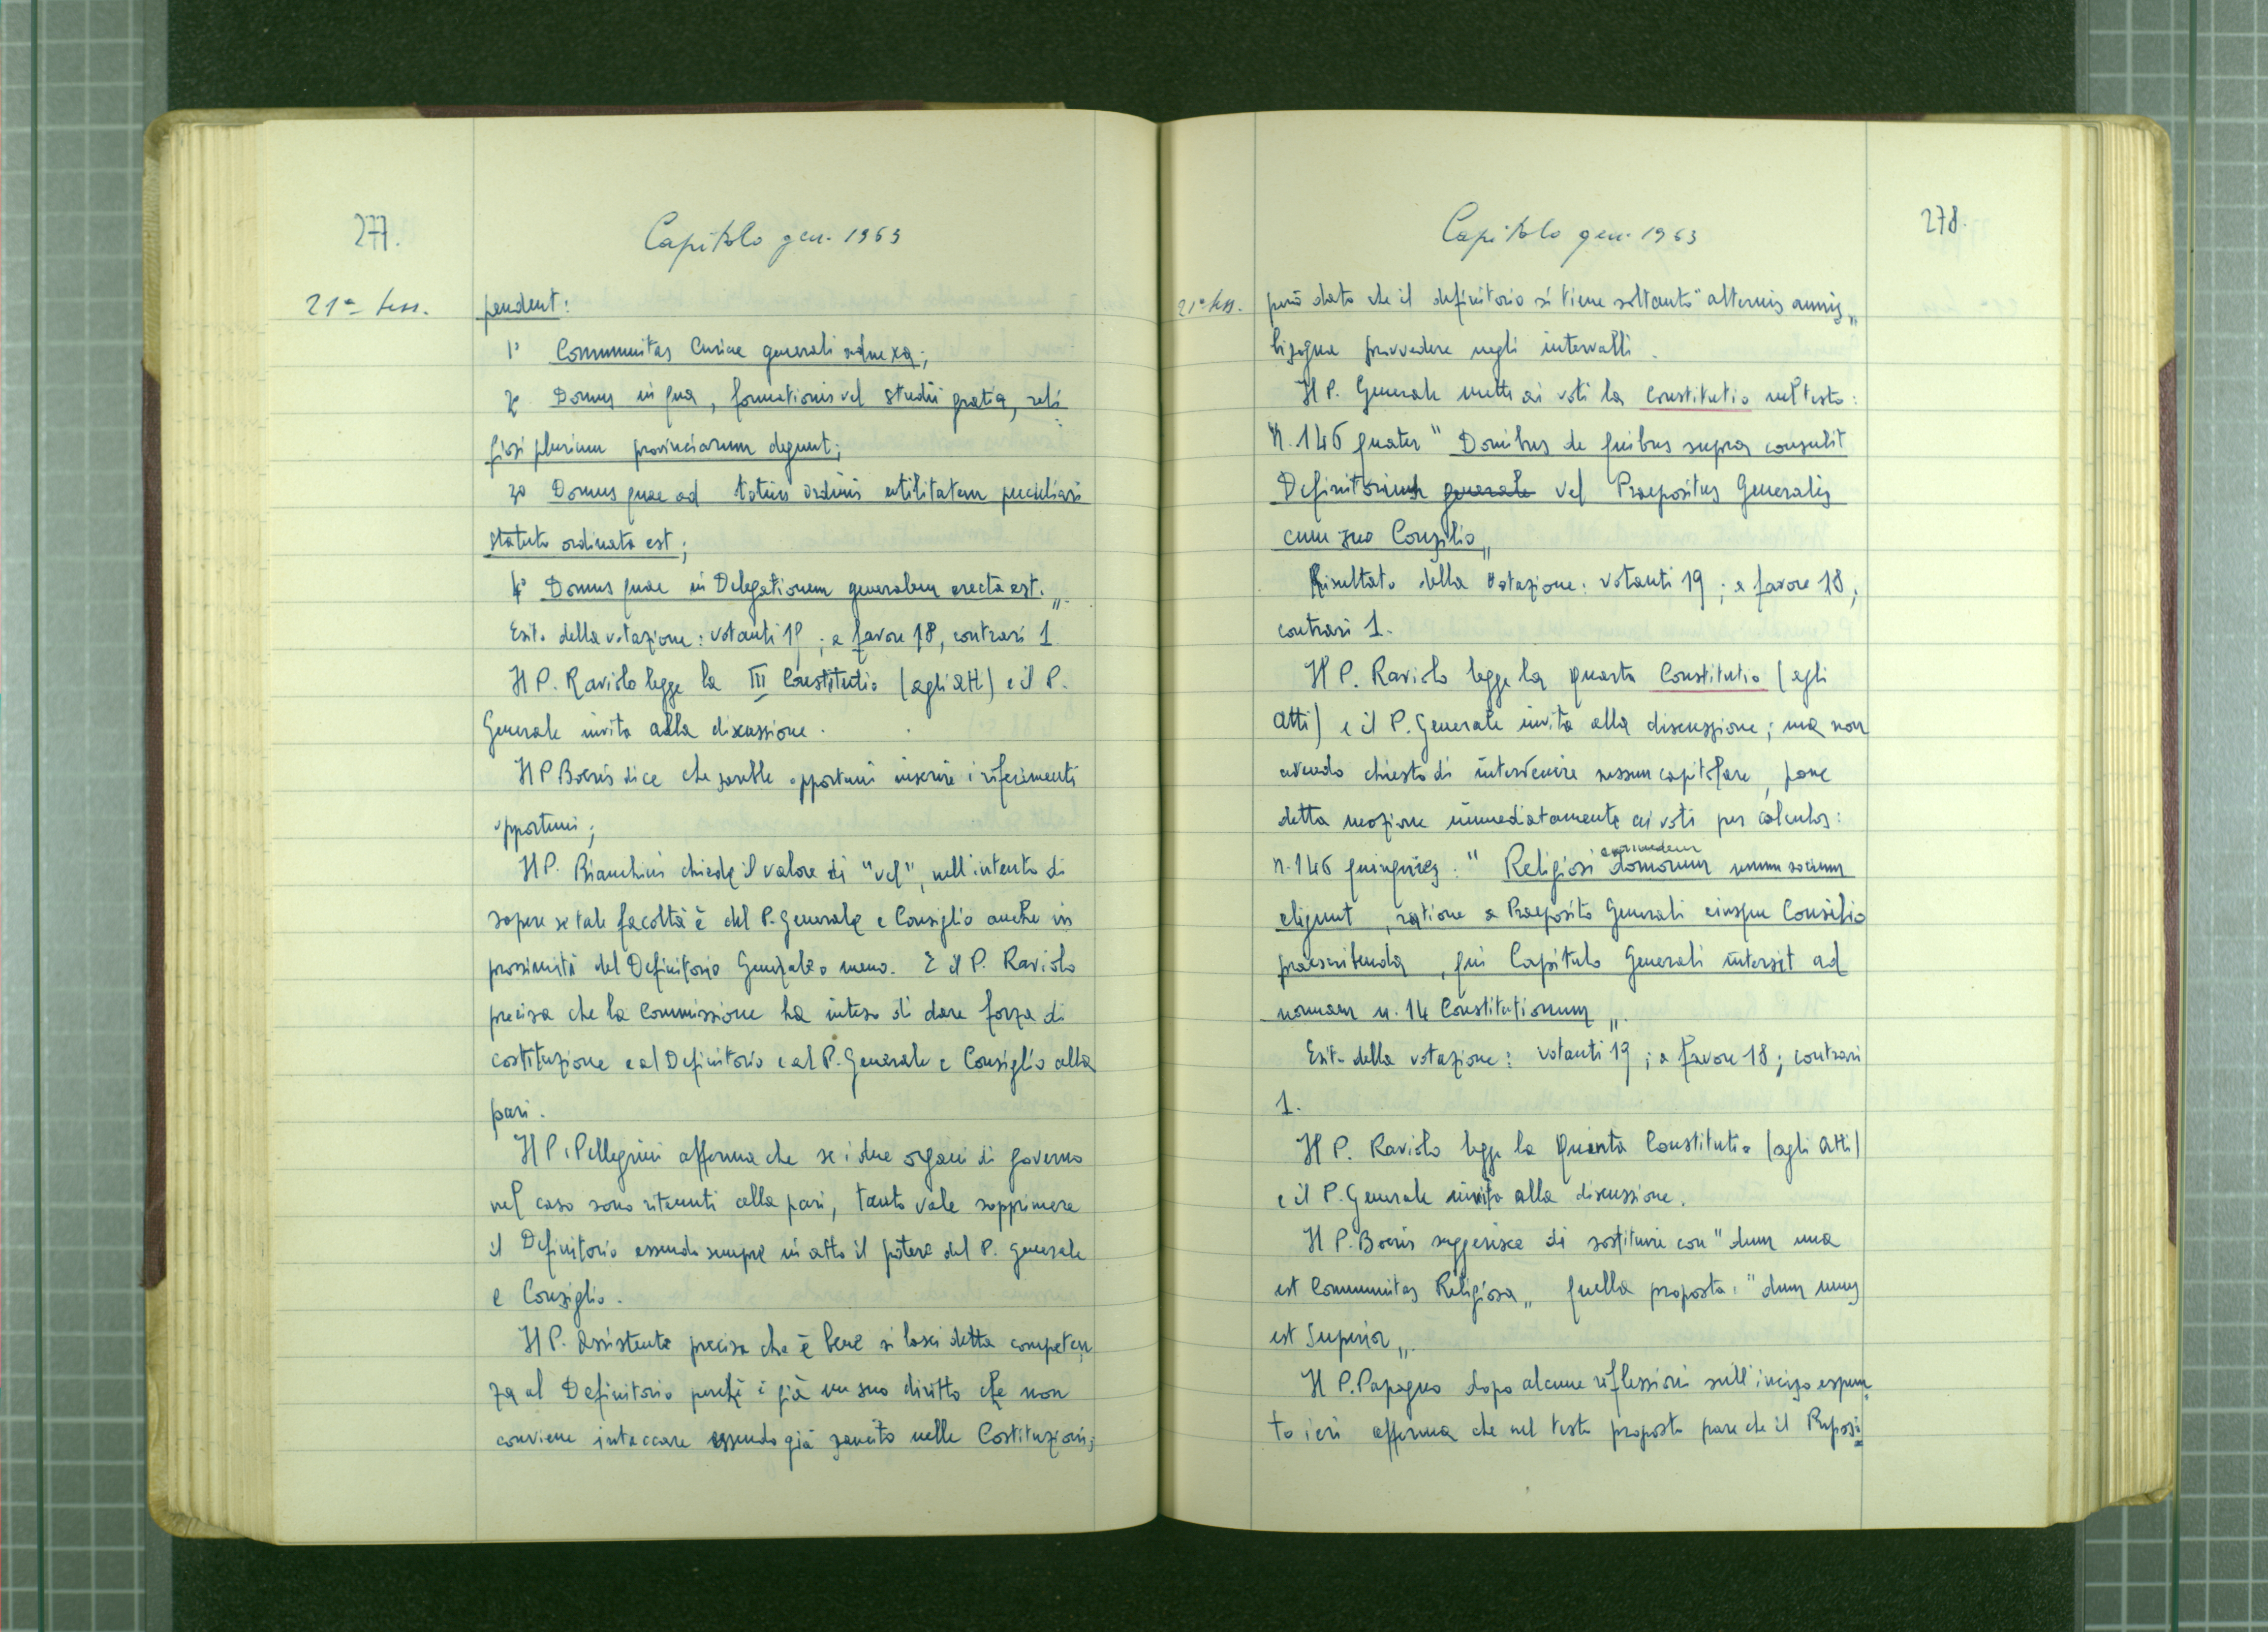 277.
Capitolo gen. 1963
21ª sess.
pendent:
1° Communitas Curiae generali adnexa;
2° Domus in qua, formationis vel studii gratia, reli
giosi plurium provinciarum degunt;
3° Domus quae ad totius ordinis utilitatem peculiari
statuto ordinata est;
4° Domus quae in Delegationem generalem erecta est.„
Esito della votazione: votanti 19; a favore 18, contrari 1
Il P. Raviolo legge la III Constitutio (agli atti) e il P.
Generale invita alla discussione.
Il P. Boeris dice che sarebbe opportuni inserire i riferimenti
opportuni;
Il P. Bianchini chiede il valore di "vel", nell'intento di
sapere se tale facoltà è del P. Generale e Consiglio anche in
prossimità del Definitorio Generale o meno. E il P. Raviolo
precisa che la Commissione ha inteso di dare forza di
costituzione e al Definitorio e al P. Generale e Consiglio alla
pari.
Il P. Pellegrini afferma che se i due organi di governo
nel caso sono ritenuti alla pari, tanto vale sopprimere
il Definitorio essendo sempre in atto il potere del P. Generale
e Consiglio.
Il P. Assistente precisa che è bene si lasci detta competen
za al Definitorio perchè è già un suo diritto che non
conviene intaccare essendo già sancito nelle Costituzioni;
278.
Capitolo gen. 1963
21ª sess.
però dato che il definitorio si tiene soltanto "alternis annis„
bisogna provvedere negli intervalli.
Il P. Generale mette ai voti la Constitutio nel testo:
"n. 146 quater "Domibus de quibus supra consulit
Definitorium generale vel Praepositus Generalis
cum suo Consilio„
Risultato della votazione: votanti 19; a favore 18;
contrari 1.
Il P. Raviolo legge la quarta Constitutio (agli
atti) e il P. Generale invita alla discussione; ma non
avendo chiesto di intervenire nessun capitolare, pone
detta mozione immediatamente ai voti per calculos:
n. 146 quinquies. "Religiosi earumdem domorum unum socium
eligunt, ratione a Praeposito Generali eiusque Consilio
praescribenda, qui Capitulo Generali intersit ad
normam n. 14 Constitutionum„.
Esito della votazione: votanti 19; a favore 18; contrari
1.
Il P. Raviolo legge la Quinta Constitutio (agli atti)
e il P. Generale invita alla discussione.
Il P. Boeris suggerisce di sostituire con "dum una
est Communitas Religiosa„ quella proposta: "dum unus
est Superior„.
Il P. Papagno dopo alcune riflessioni sull'inciso espun
to ieri afferma che nel testo proposto pare che il Preposi